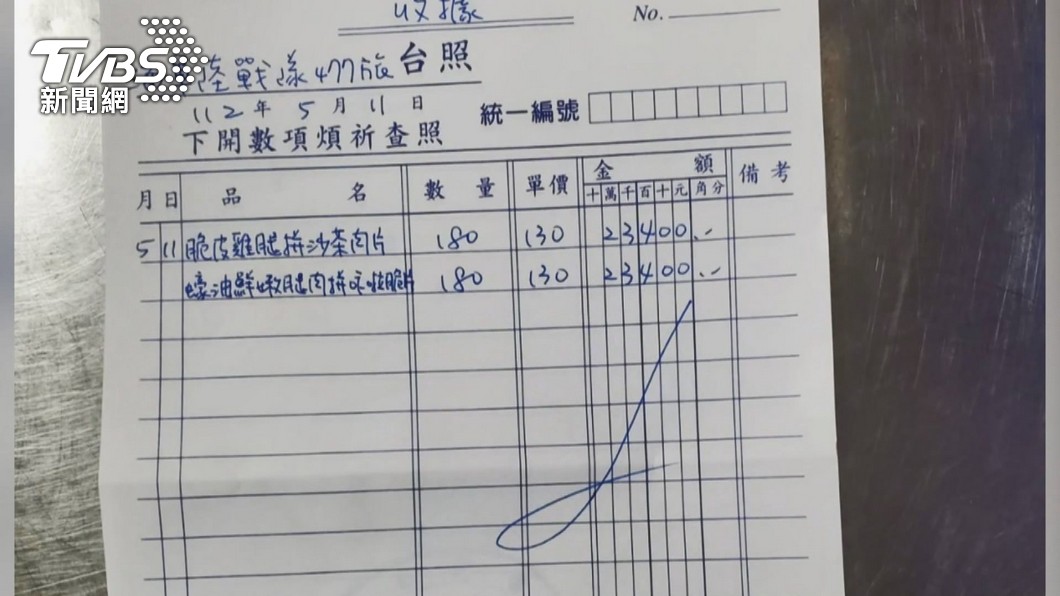 收據
No.
TVBS
新聞網
陸戰隊477旅 台照
112年5月11日
統一編號
下開數項煩祈查照
月 日 品名 數量 單價 金額 備考
十萬千百十元角分
5 11 脆皮雞腿拼沙茶肉片 180 130 23400.-
蠔油鮮嫩腿肉拼 180 130 23400.-